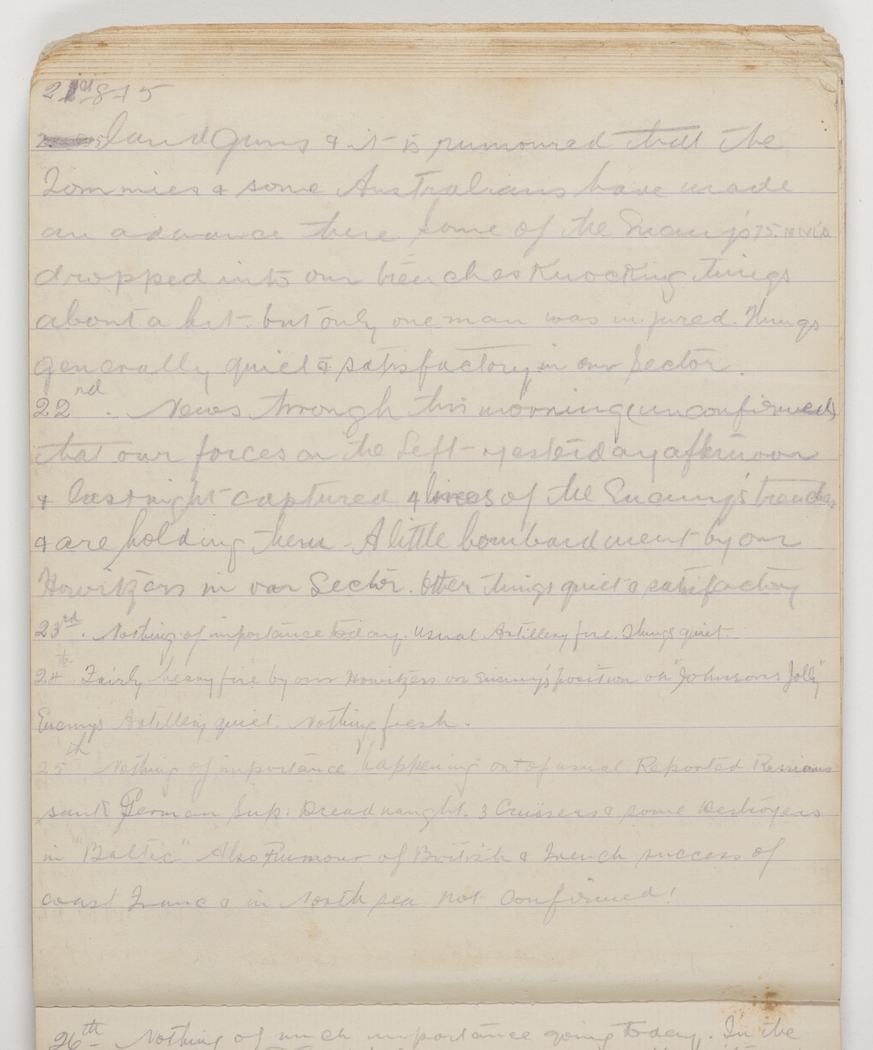 21st-8-15
land Guns & it is rumoured that the
Tommies & some Australians have made
an advance there some of the Enemy's 75. M
dropped into our trenches Knocking things
about a bit. but only one man was injured. Things
generally quiet & satisfactory in our Sector.
22nd. News through this morning (unconfirmed)
that our forces on the Left yesterday afternoon
& last night captured 4 lines of the Enemy's trenches
& are holding them. A little bombardment by our
Howitzers in our Sector. Other things quiet & satisfactory
23rd. Nothing of importance today. Usual Artillery fire. Things quiet.
24th Fairly heavy fire by our Howitzers on Enemy's position on "Johnsons Jolly"
Enemys Artillery quiet. Nothing fresh.
25th Nothing of importance happening out of usual Reported Russians
sunk German Sup: Dreadnaught. 3 Cruisers & some Destroyers
in "Baltic" Also Rumour of British & French success of
coast France & in North sea not Confirmed!
26th Nothing of much importance going today. In the